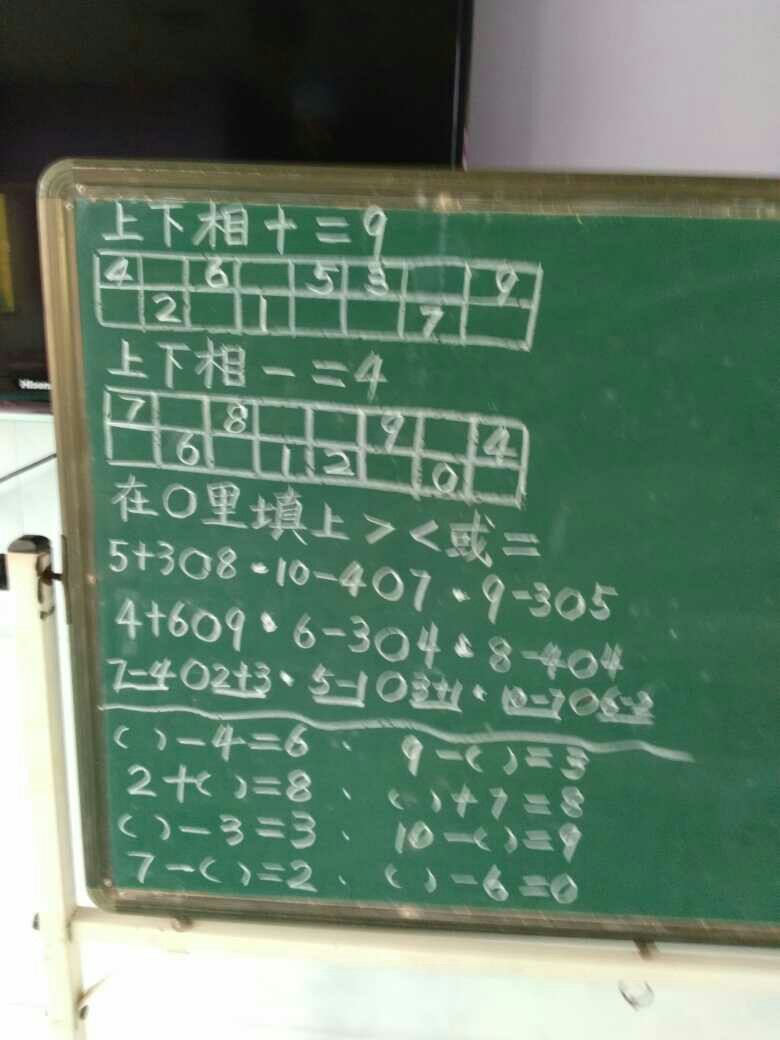 上下相+=9
4 6 5 3 9
2 1 7
上下相-=4
7 8 9 4
6 1 2 0
在○里填上><或=
5+3○8·10-4○7·9-3○5
4+6○9·6-3○4·8-4○4
7-4○2+3·5-1○3+1·10-7○6-3
( )-4=6、 9-( )=3
2+( )=8、 ( )+7=8
( )-3=3、 10-( )=9
7-( )=2、 ( )-6=0
Hisense